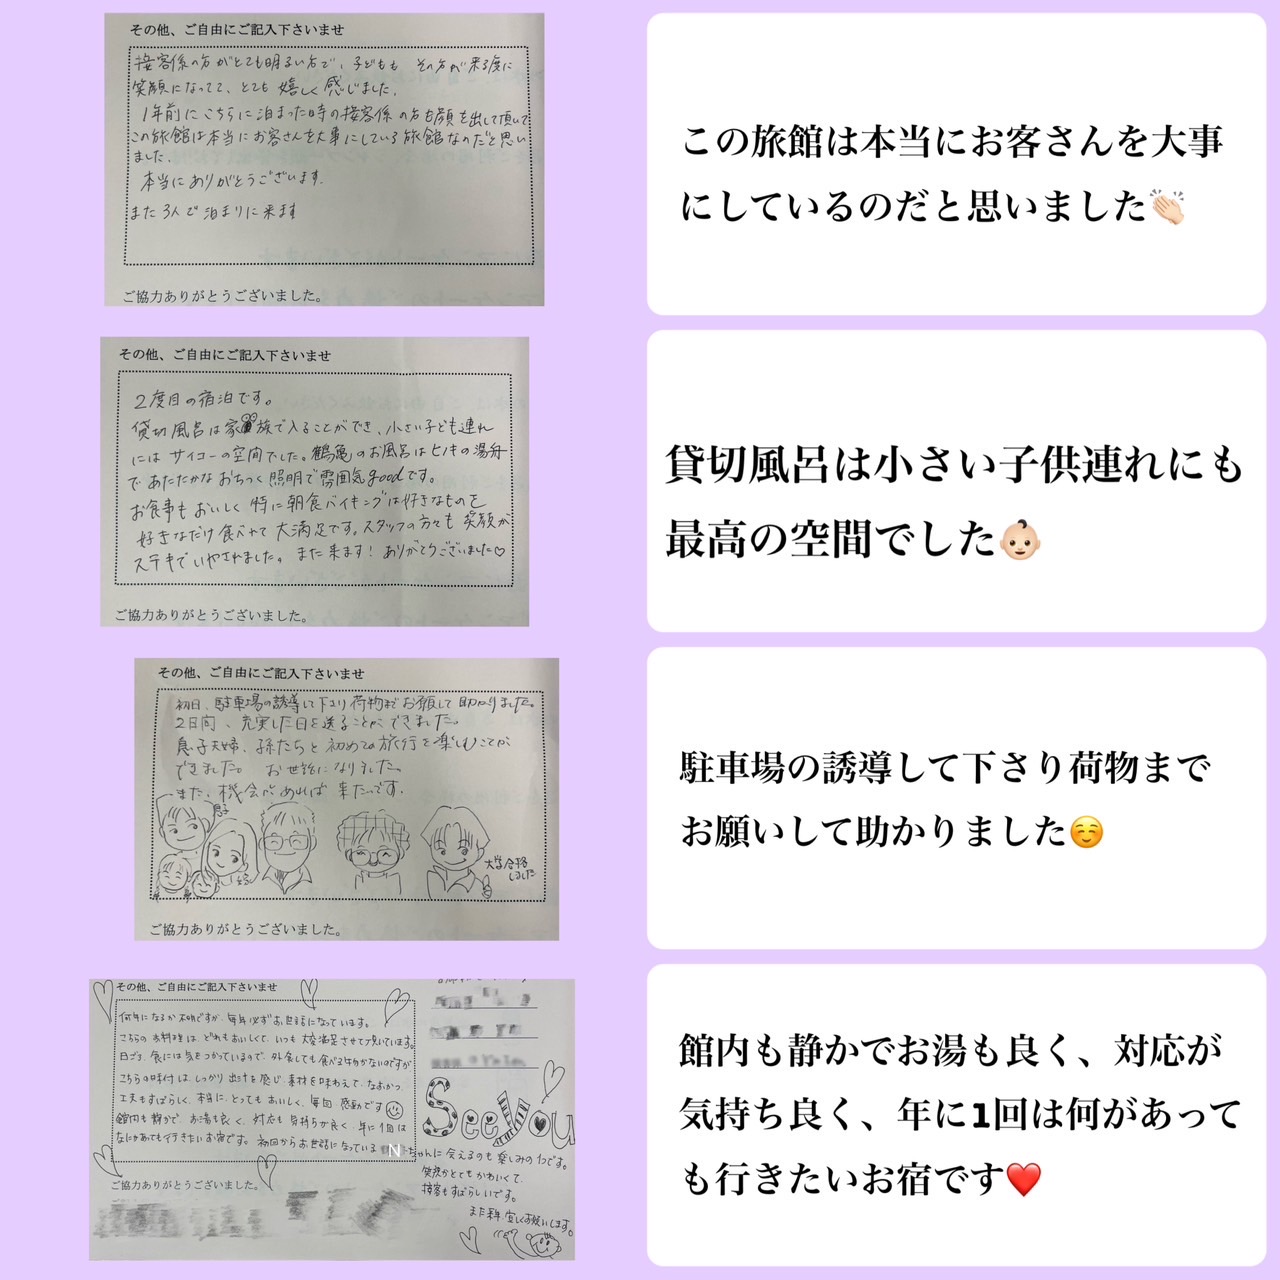 その他、ご自由にご記入下さいませ
接客係の方がとても明るい方で、子どもも その方が来る度に
笑顔になってて、とても 嬉しく 感じました。
1年前にこちらに泊まった時の接客係の方も顔を出して頂いて
この旅館は本当にお客さんを大事にしている旅館なのだと思い
ました。
本当にありがとうございます。
また3人で泊まりに来ます
ご協力ありがとうございました。
この旅館は本当にお客さんを大事
にしているのだと思いました👏🏻
その他、ご自由にご記入下さいませ
2度目の宿泊です。
貸切風呂は家族で入ることができ、小さい子ども連れ
にはサイコーの空間でした。鶴亀のお風呂はヒノキの湯舟
であたたかなおちつく照明で雰囲気goodです。
お食事もおいしく 特に朝食バイキングは好きなものを
好きなだけ食べれて大満足です。スタッフの方々も 笑顔が
ステキでいやされました。また来ます! ありがとうございました♡
ご協力ありがとうございました。
貸切風呂は小さい子供連れにも
最高の空間でした👶🏻
その他、ご自由にご記入下さいませ
初日、駐車場の誘導して下さり荷物までお願して助かりました。
2日間、充実した日を送ることができました。
息子夫婦、孫たちと初めての旅行を楽しむことが
できました。 お世話になりました。
また、機会があれば 来たいです。
息子
嫁
孫
孫
大学合格
しました
ご協力ありがとうございました。
駐車場の誘導して下さり荷物まで
お願いして助かりました☺️
その他、ご自由にご記入下さいませ
何年になるか不明ですが、毎年必ずお世話になっています。
こちらのお料理は、どれもおいしくて、いつも大変満足させて頂いています。
日ごろ、食には気をつかっているので、外食しても食べる物がないのですが
こちらの味付はしっかり出汁を感じ素材を味わえて、なおかつ、
工夫もすばらしく、本当に、とってもおいしく、毎回 感動です☺
館内も静かで お湯も良く、対応も 気持ちが良く、年に1回は
なにがあっても行きたいお宿です。初回からお世話になっている
N ちゃんに会えるのも楽しみの1つです。
笑顔がとてもかわいくて、
接客もすばらしいです。
また来年、宜しくお願いします。
See You
ご協力ありがとうございました。
館内も静かでお湯も良く、対応が
気持ち良く、年に1回は何があって
も行きたいお宿です❤️